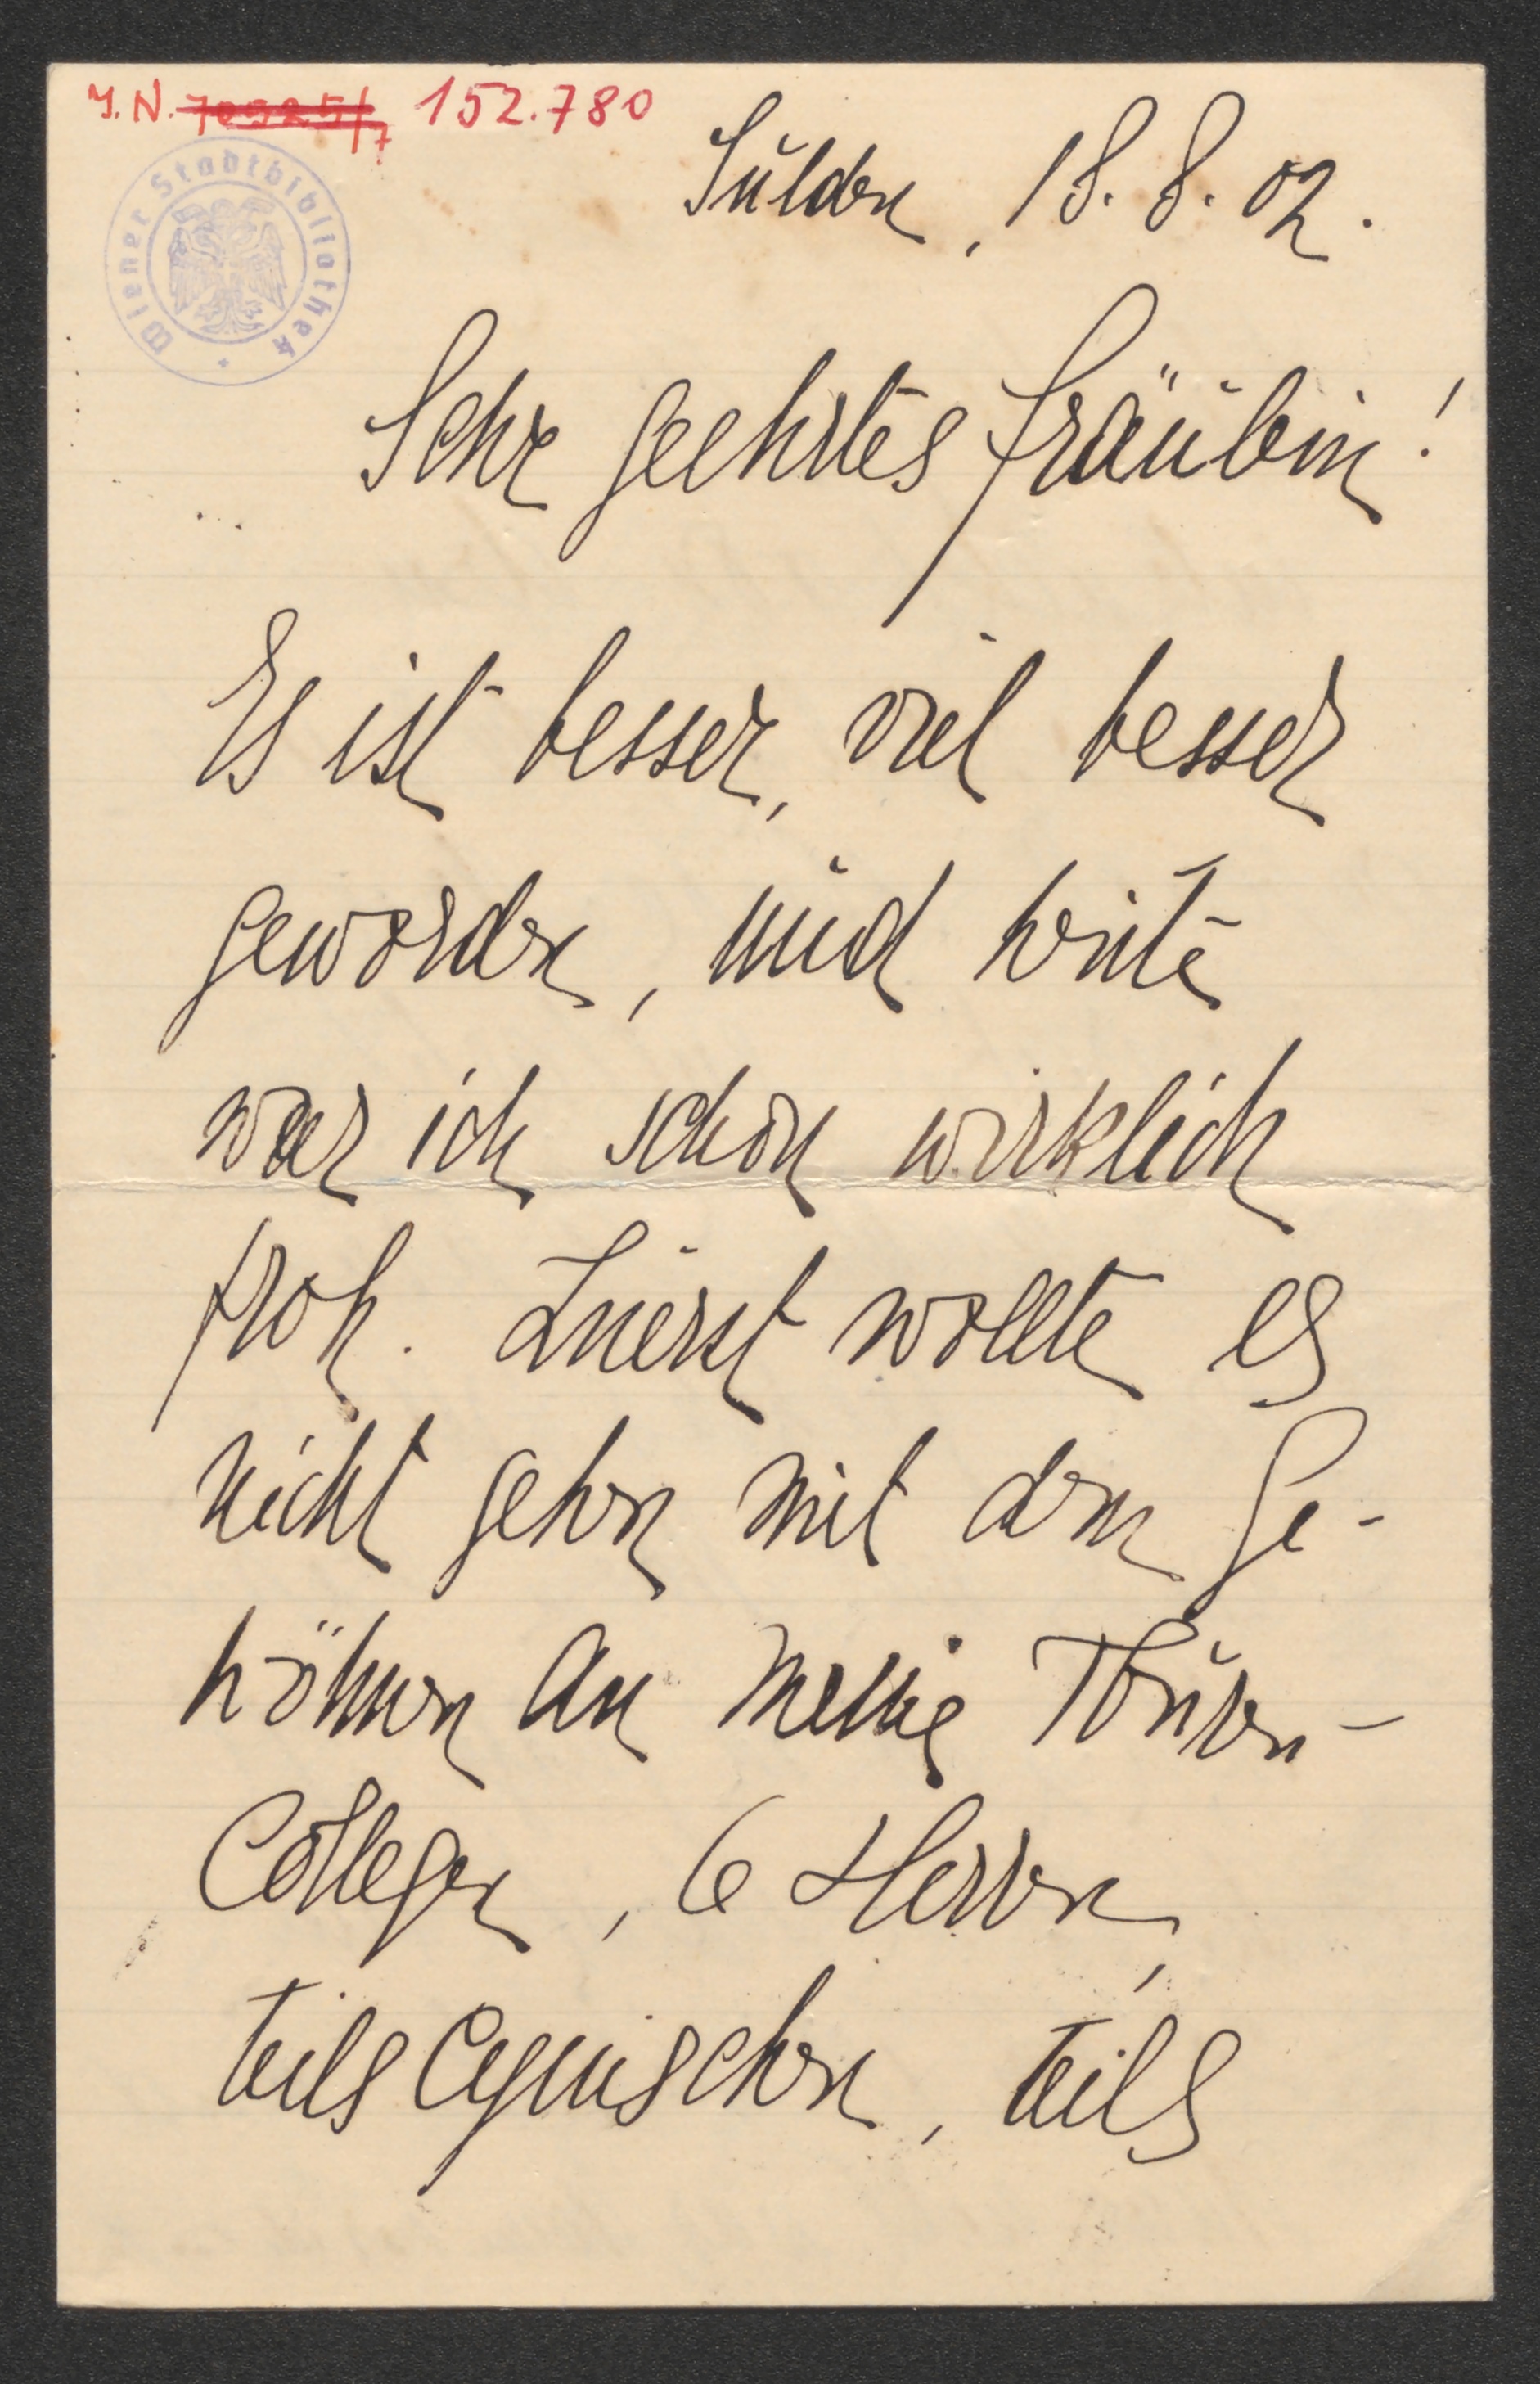 I.N. 70925/7 152.780
Wiener Stadtbibliothek
Sulden, 18. 8. 02.
Sehr geehrtes Fräulein!
Es ist besser, viel besser
geworden, und heute
war ich schon wirklich
froh. Zuerst wollte es
nicht gehen mit dem Ge-
wöhnen an meine Touren-
Collegen, 6 Herren,
teils cynischen, teils